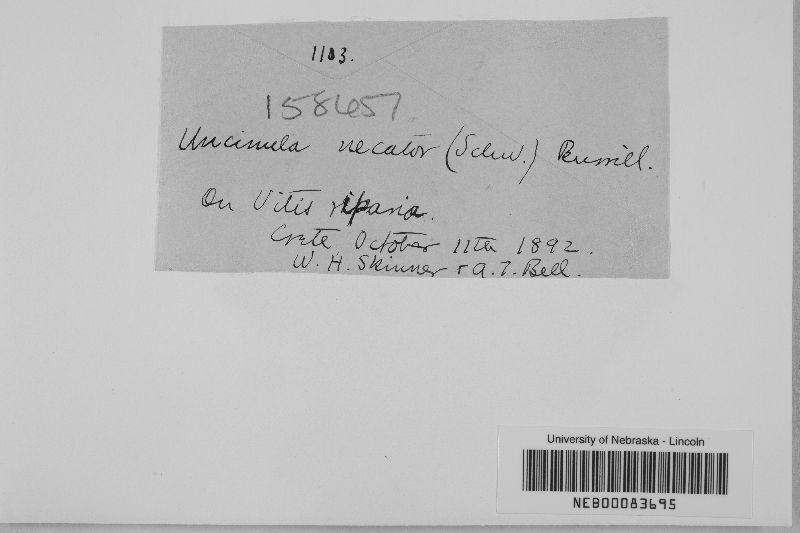 1103.
158457
Uncinula necator (Schw.) Burrill.
On Vitis riparia.
Crete, October 11th 1892.
W. H. Skinner & A. T. Bell.
University of Nebraska - Lincoln
NEB00083695